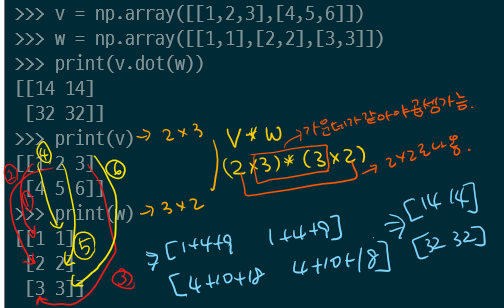 >>> v = np.array([[1,2,3],[4,5,6]])
>>> w = np.array([[1,1],[2,2],[3,3]])
>>> print(v.dot(w))
[[14 14]
 [32 32]]
가운데가 같아야 곱셈가능.
>>> print(v) → 2×3
V * W
④ ⑥
[[1 2 3]
(2×3) * (3×2)
→ 2×2로 나옴.
② ①
[4 5 6]]
>>> print(w) → 3×2
[[1 1]
⑤
[2 2]
③
[3 3]]
⇒ [1+4+9 1+4+9]
[4+10+18 4+10+18]
⇒ [14 14]
[32 32]